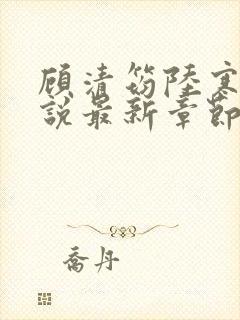 顾清笏陆寒
说最新章节
乔丹